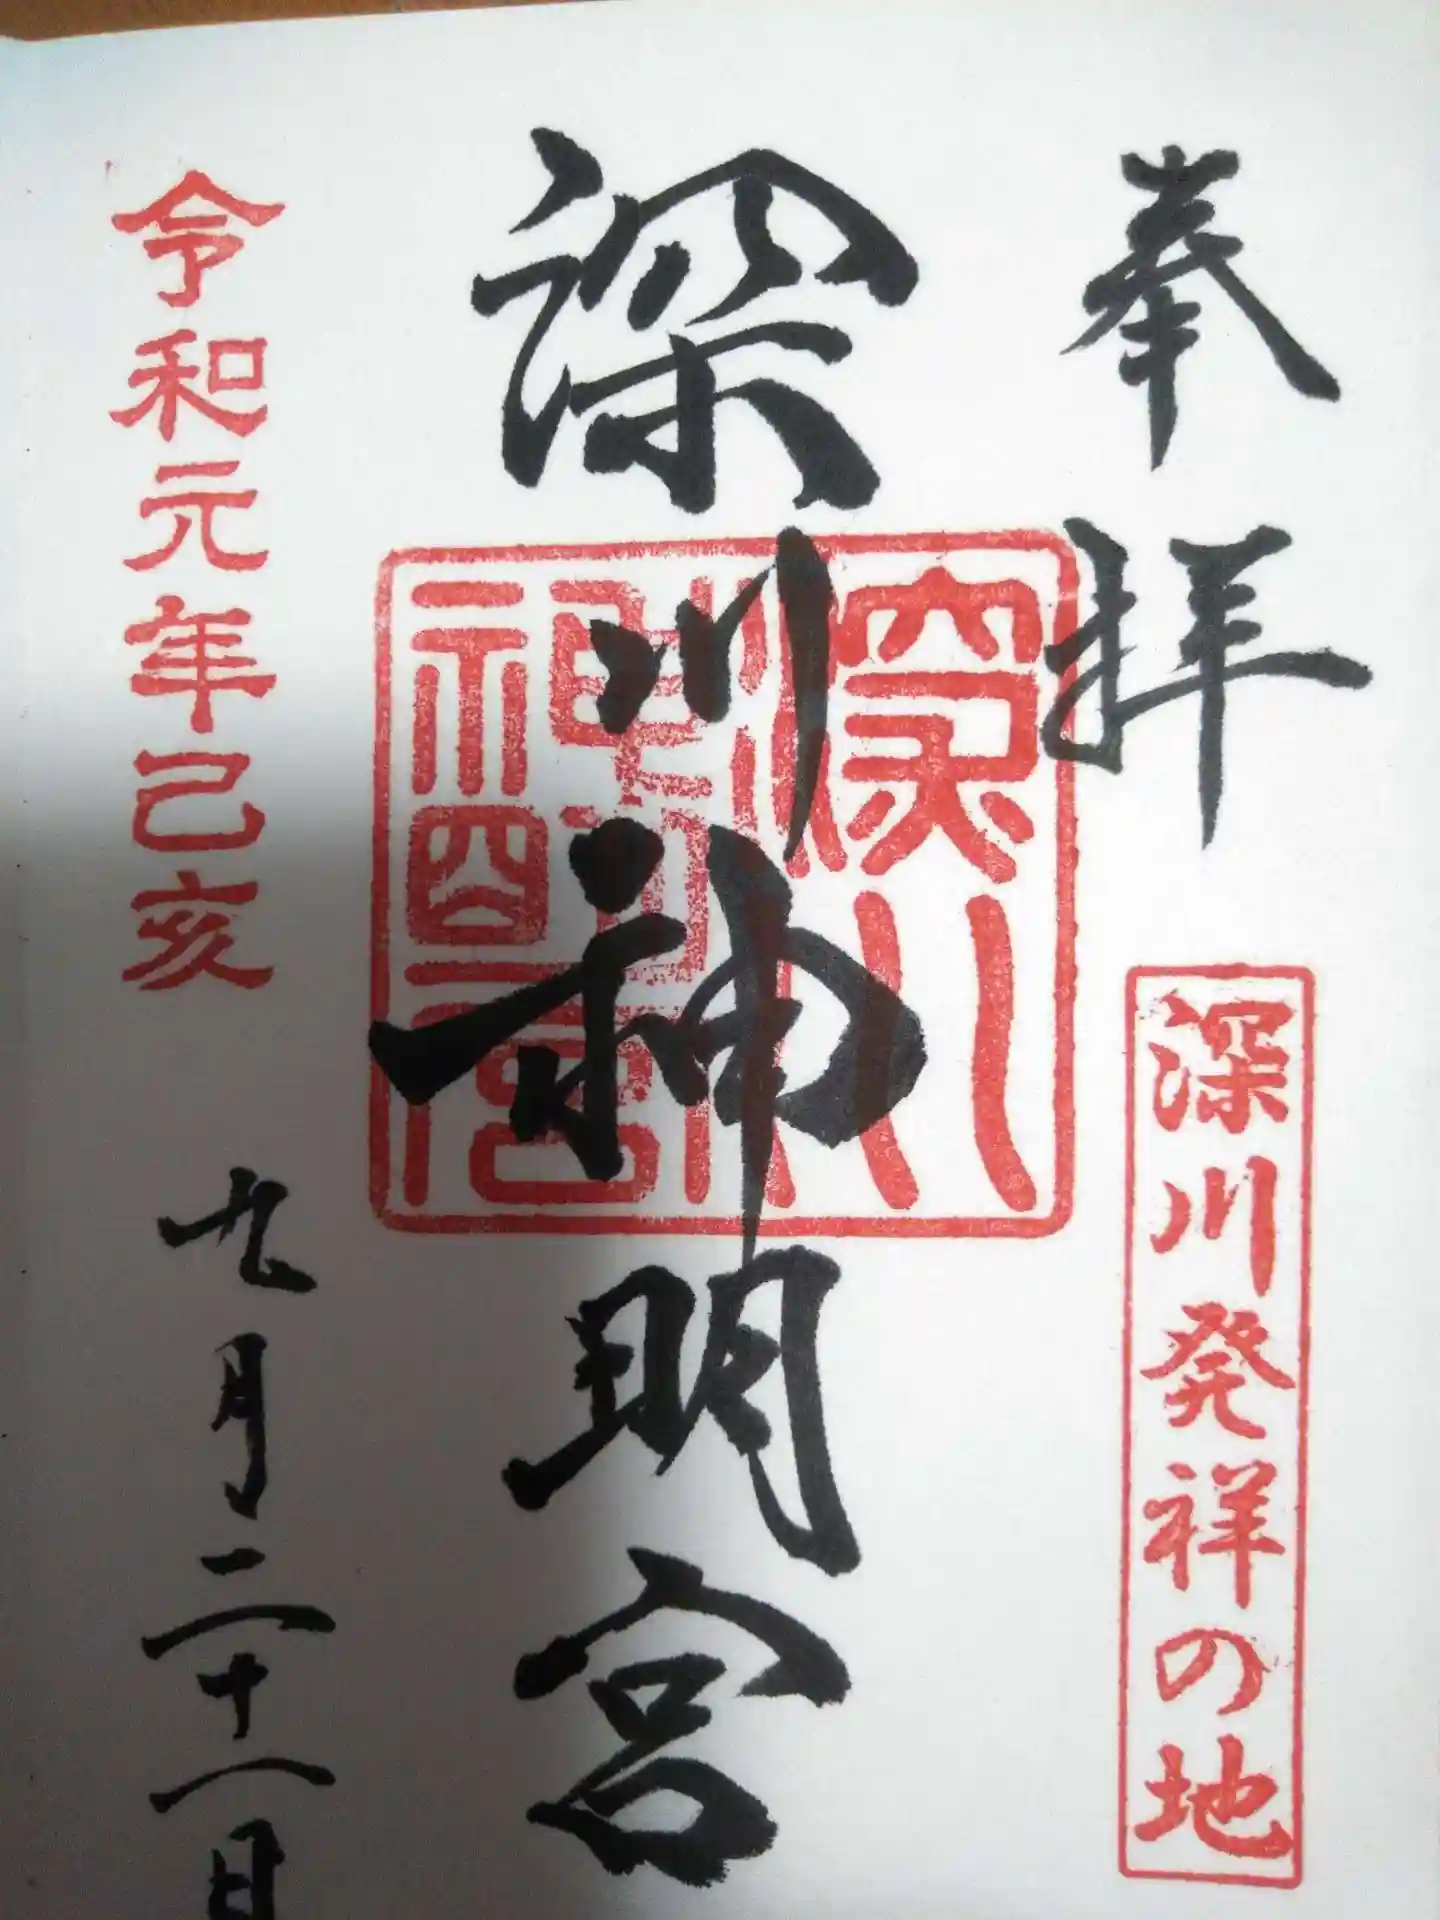 奉拝
深川発祥の地
深川神明宮
深川
神明宮
令和元年己亥
九月二十一日